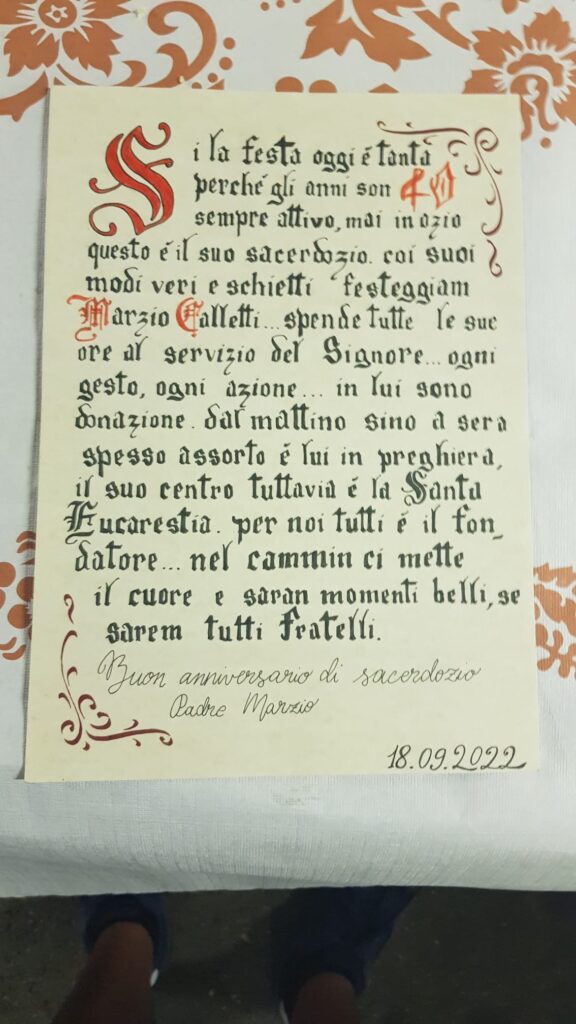 Si la festa oggi é tanta
perché gli anni son 40
sempre attivo, mai in ozio
questo é il suo sacerdozio. coi suoi
modi veri e schietti festeggiam
Marzio Calletti... spende tutte le sue
ore al servizio del Signore... ogni
gesto, ogni azione... in lui sono
donazione. dal mattino sino a sera
spesso assorto é lui in preghiera,
il suo centro tuttavia é la Santa
Eucarestia. per noi tutti é il fon_
datore... nel cammin ci mette
il cuore e saran momenti belli, se
sarem tutti fratelli.
Buon anniversario di sacerdozio
Padre Marzio
18.09.2022